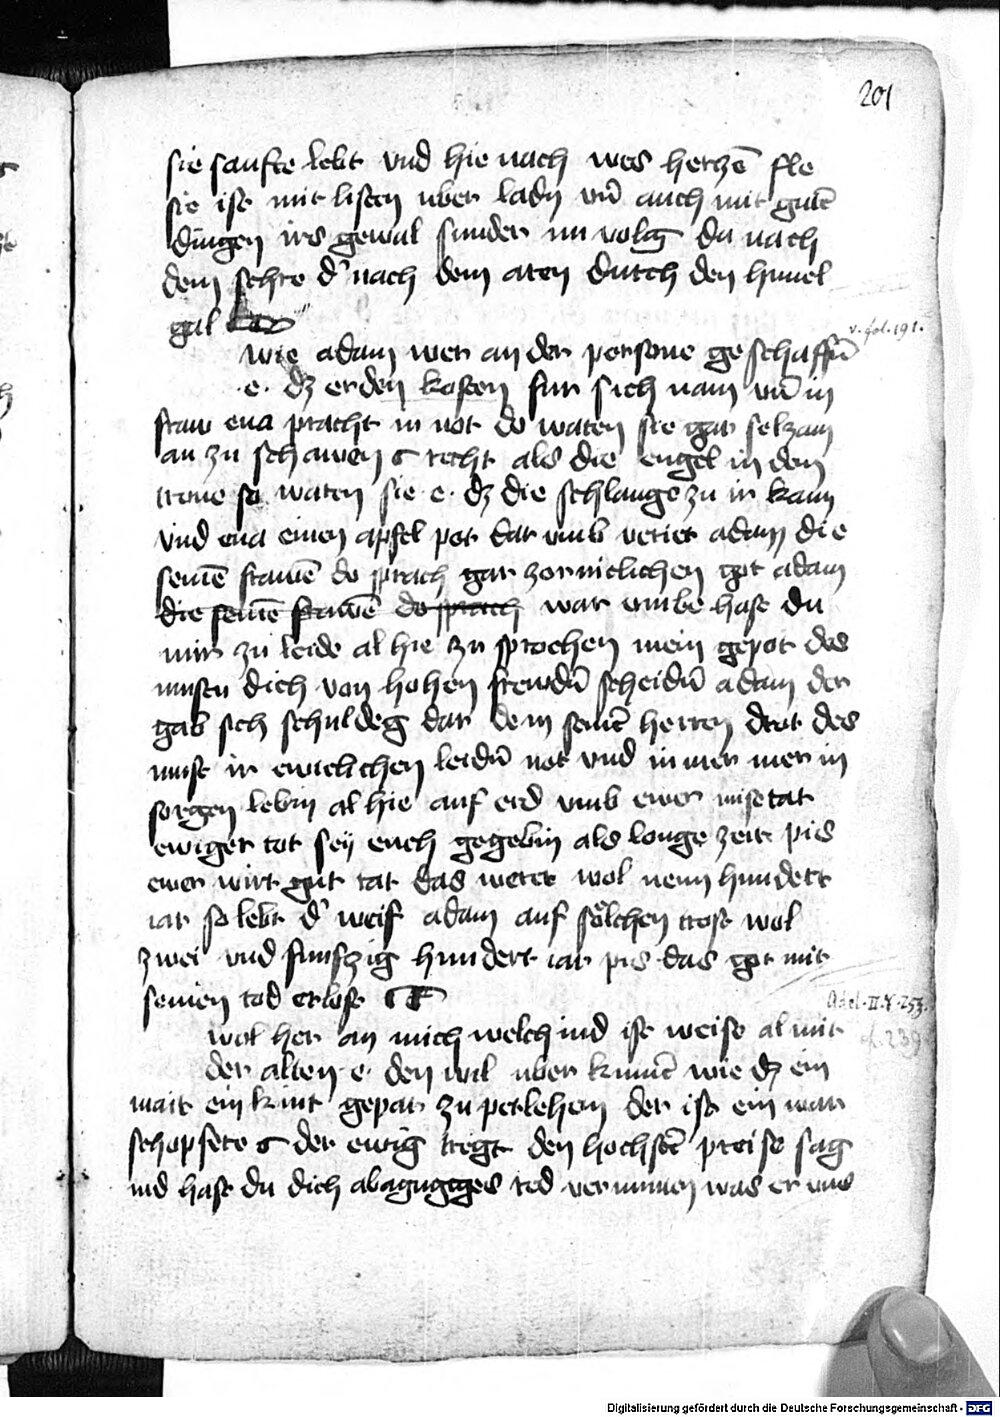 201
sie sanfte lebt vnd hie nach wes hertzē fle
sie ist mit listen vber ladn vn̄ auch mit gutē
dingen irs gewal sunder im volg da nach
dem sehre d' nach dem aten durch den himel
gal
v. fol. 191.
wie adam wer an der persone geschaffn̄
e. dz er den kosten fur sich nam vn̄ in
fraw eua pracht in not do waren sie gar selzam
an zu schawen recht als die engel in dem
trone so waren sie e. dz die schlange zu ir kam
vnd eua einen apfel pot dar vmb veriet adam die
seinē frawē do sprach gar zorniclichen got adam
die seinē frawē do sprach war vmbe hast du
mir zu leide al hie zu sprochen mein gepot des
musen dich von hohen frewdn̄ scheidn̄ adam der
gab sich schuldeg dar dem seinē herren drot des
must ir ewiclichen leidn̄ not vnd immer mer in
sorgen lebin al hie auf erd vmb ewer misetat
ewiger tot sey euch gegebin als longe zeit pis
ewer wirt gut rat das weret wol neun hundert
iar so lebt d' weis adam auf sölchen trost wol
zwei vnd funfzig hundert iar pis das got mit
seinen tod erlost
Adel. II. S. 253.
f. 239
wol her an mich welch iud ist weise al mit
der alten e. den wil vber kumē wie dz ein
mait ein kint gepar zu petlehem der ist ein war
schopfere der ewig tregt den hochstē preise sag
iud hast du dich abagugges red vernumen was er vns
Digitalisierung gefördert durch die Deutsche Forschungsgemeinschaft - DFG